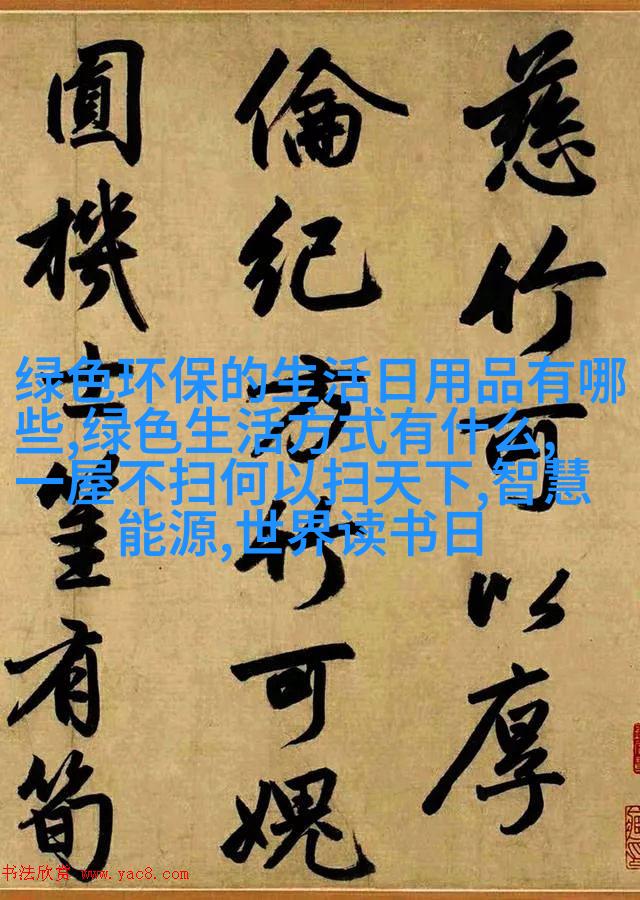 慈竹可以厚
倫紀方竹可媿
圓機有筍
绿色环保的生活日用品有哪
些,绿色生活方式有什么,
一屋不扫何以扫天下,智慧
能源,世界读书日
书法欣赏 www.yac8.com